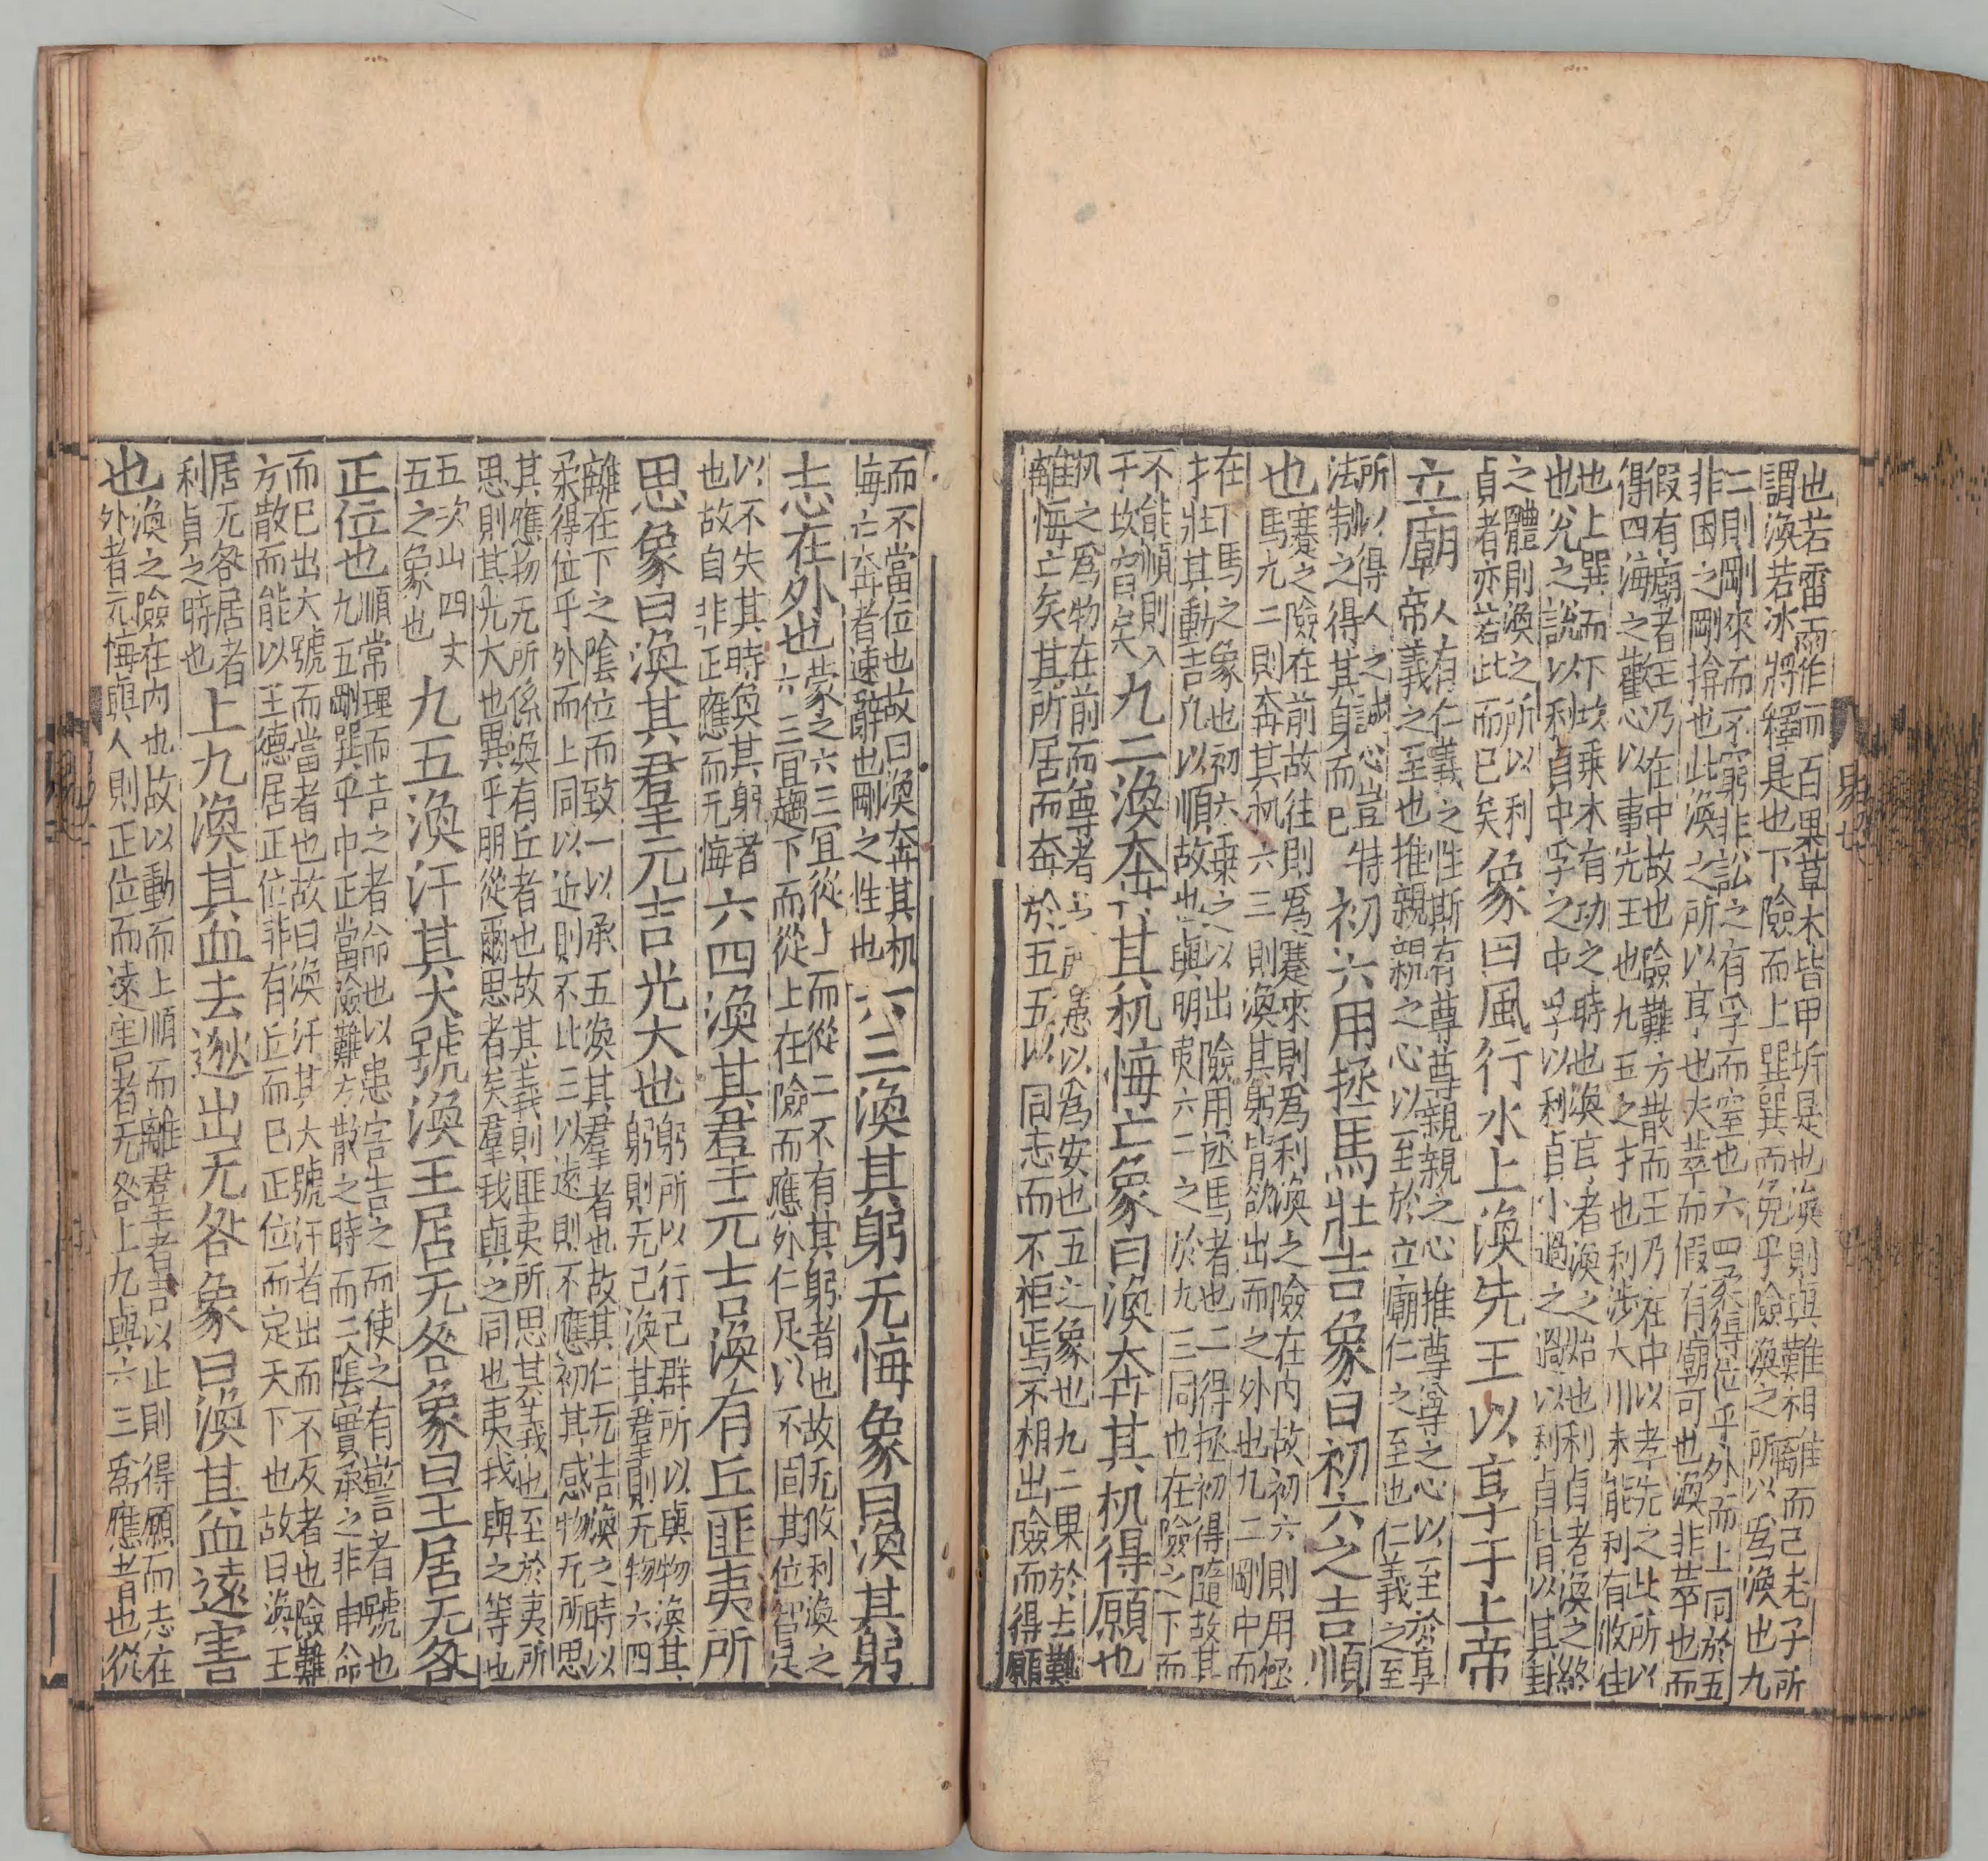 也若雷雨作而百果草木皆甲坼是也渙則與難相離而已老子所
謂渙若冰將釋是也下險而上巽巽而免乎險渙之所以爲渙也九
二則剛來而不窮非訟之有孚而窒也六四柔得位乎外而上同於五
非困之剛揜也此渙之所以亨也夫萃而假有廟可也渙非萃也而
假有廟者王乃在中故也險難方散而王乃在中以孝先之此所以
得四海之歡心以事先王也九五之才也利涉大川未能利有攸往
也上巽而下坎乘木有功之時也渙官者渙之始也利貞者渙之終
也兌之說以利貞中孚之中孚以利貞小過之過以利貞皆以其卦
之體則渙之所以利
貞者亦若此而已矣
象曰風行水上渙先王以享于上帝
立廟
人有仁義之性斯有尊尊親親之心推尊尊之心以至於享
帝義之至也推親親之心以至於立廟仁之至也仁義之至
所以得人之誠心豈特
法制之得其身而已
初六用拯馬壯吉象曰初六之吉順
也
蹇之險在前故往則爲蹇來則爲利渙之險在内故初六則用極
馬九二則奔其机六三則渙其躬皆欲出而之外也九二剛中而
在下馬之象也初六乘之以出險用拯馬者也二得拯初得隨故其
才壯其動吉九以順故也與明夷六二之於九三同也在險之下而
不能順則入
于坎窞矣
九二渙奔其机悔亡象曰渙奔其机得願也
机之爲物在前而尊者憑以爲安也五之象也九二果於去難
離悔亡矣其所居而奔於五五以同志而不柜焉不相出險而得願
而不當位也故曰渙奔其机
悔亡奔者速辭也剛之性也
六三渙其躬无悔象曰渙其躬
志在外也
蒙之六三宜從上而從二不有其躬者也故无攸利渙之
六三宜趨下而從上在險而應外仁足以不固其位智足
以不失其時奐其躬者
也故自非正應而元悔
六四渙其羣元吉渙有丘匪夷所
思象曰渙其羣元吉光大也
躬所以行己群所以與物渙其
躬則无己渙其羣則无物六四
離在下之陰位而致一以承五渙其羣者也故其仁元吉渙之時以
柔得位乎外而上同以近則不比三以遠則不應初其感物无所思
其應物无所係渙有丘者也故其義則匪夷所思其至義也至於夷所
思則其光大也異乎朋從爾思者矣羣我與之同也夷我與之等也
五次山四丈
五之象也
九五渙汗其大號渙王居无咎象曰王居无咎
正位也
順常理而吉之者命也以患害吉之而使之有警言者號也
九五剛巽乎中正當險難方散之時而二陰實承之非申命
而已出大號而當者也故曰渙汗其大號汗者出而不反者也險難
方散而能以王德居正位非有丘而已正位而定天下也故曰渙王
居无咎居者
利貞之時也
上九渙其血去逖出无咎象曰渙其血遠害
也
渙之險在内也故以動而上順而離羣者害以止則得願而志在
外者元悔與人則正位而遠害者无咎上九與六三爲應者也從